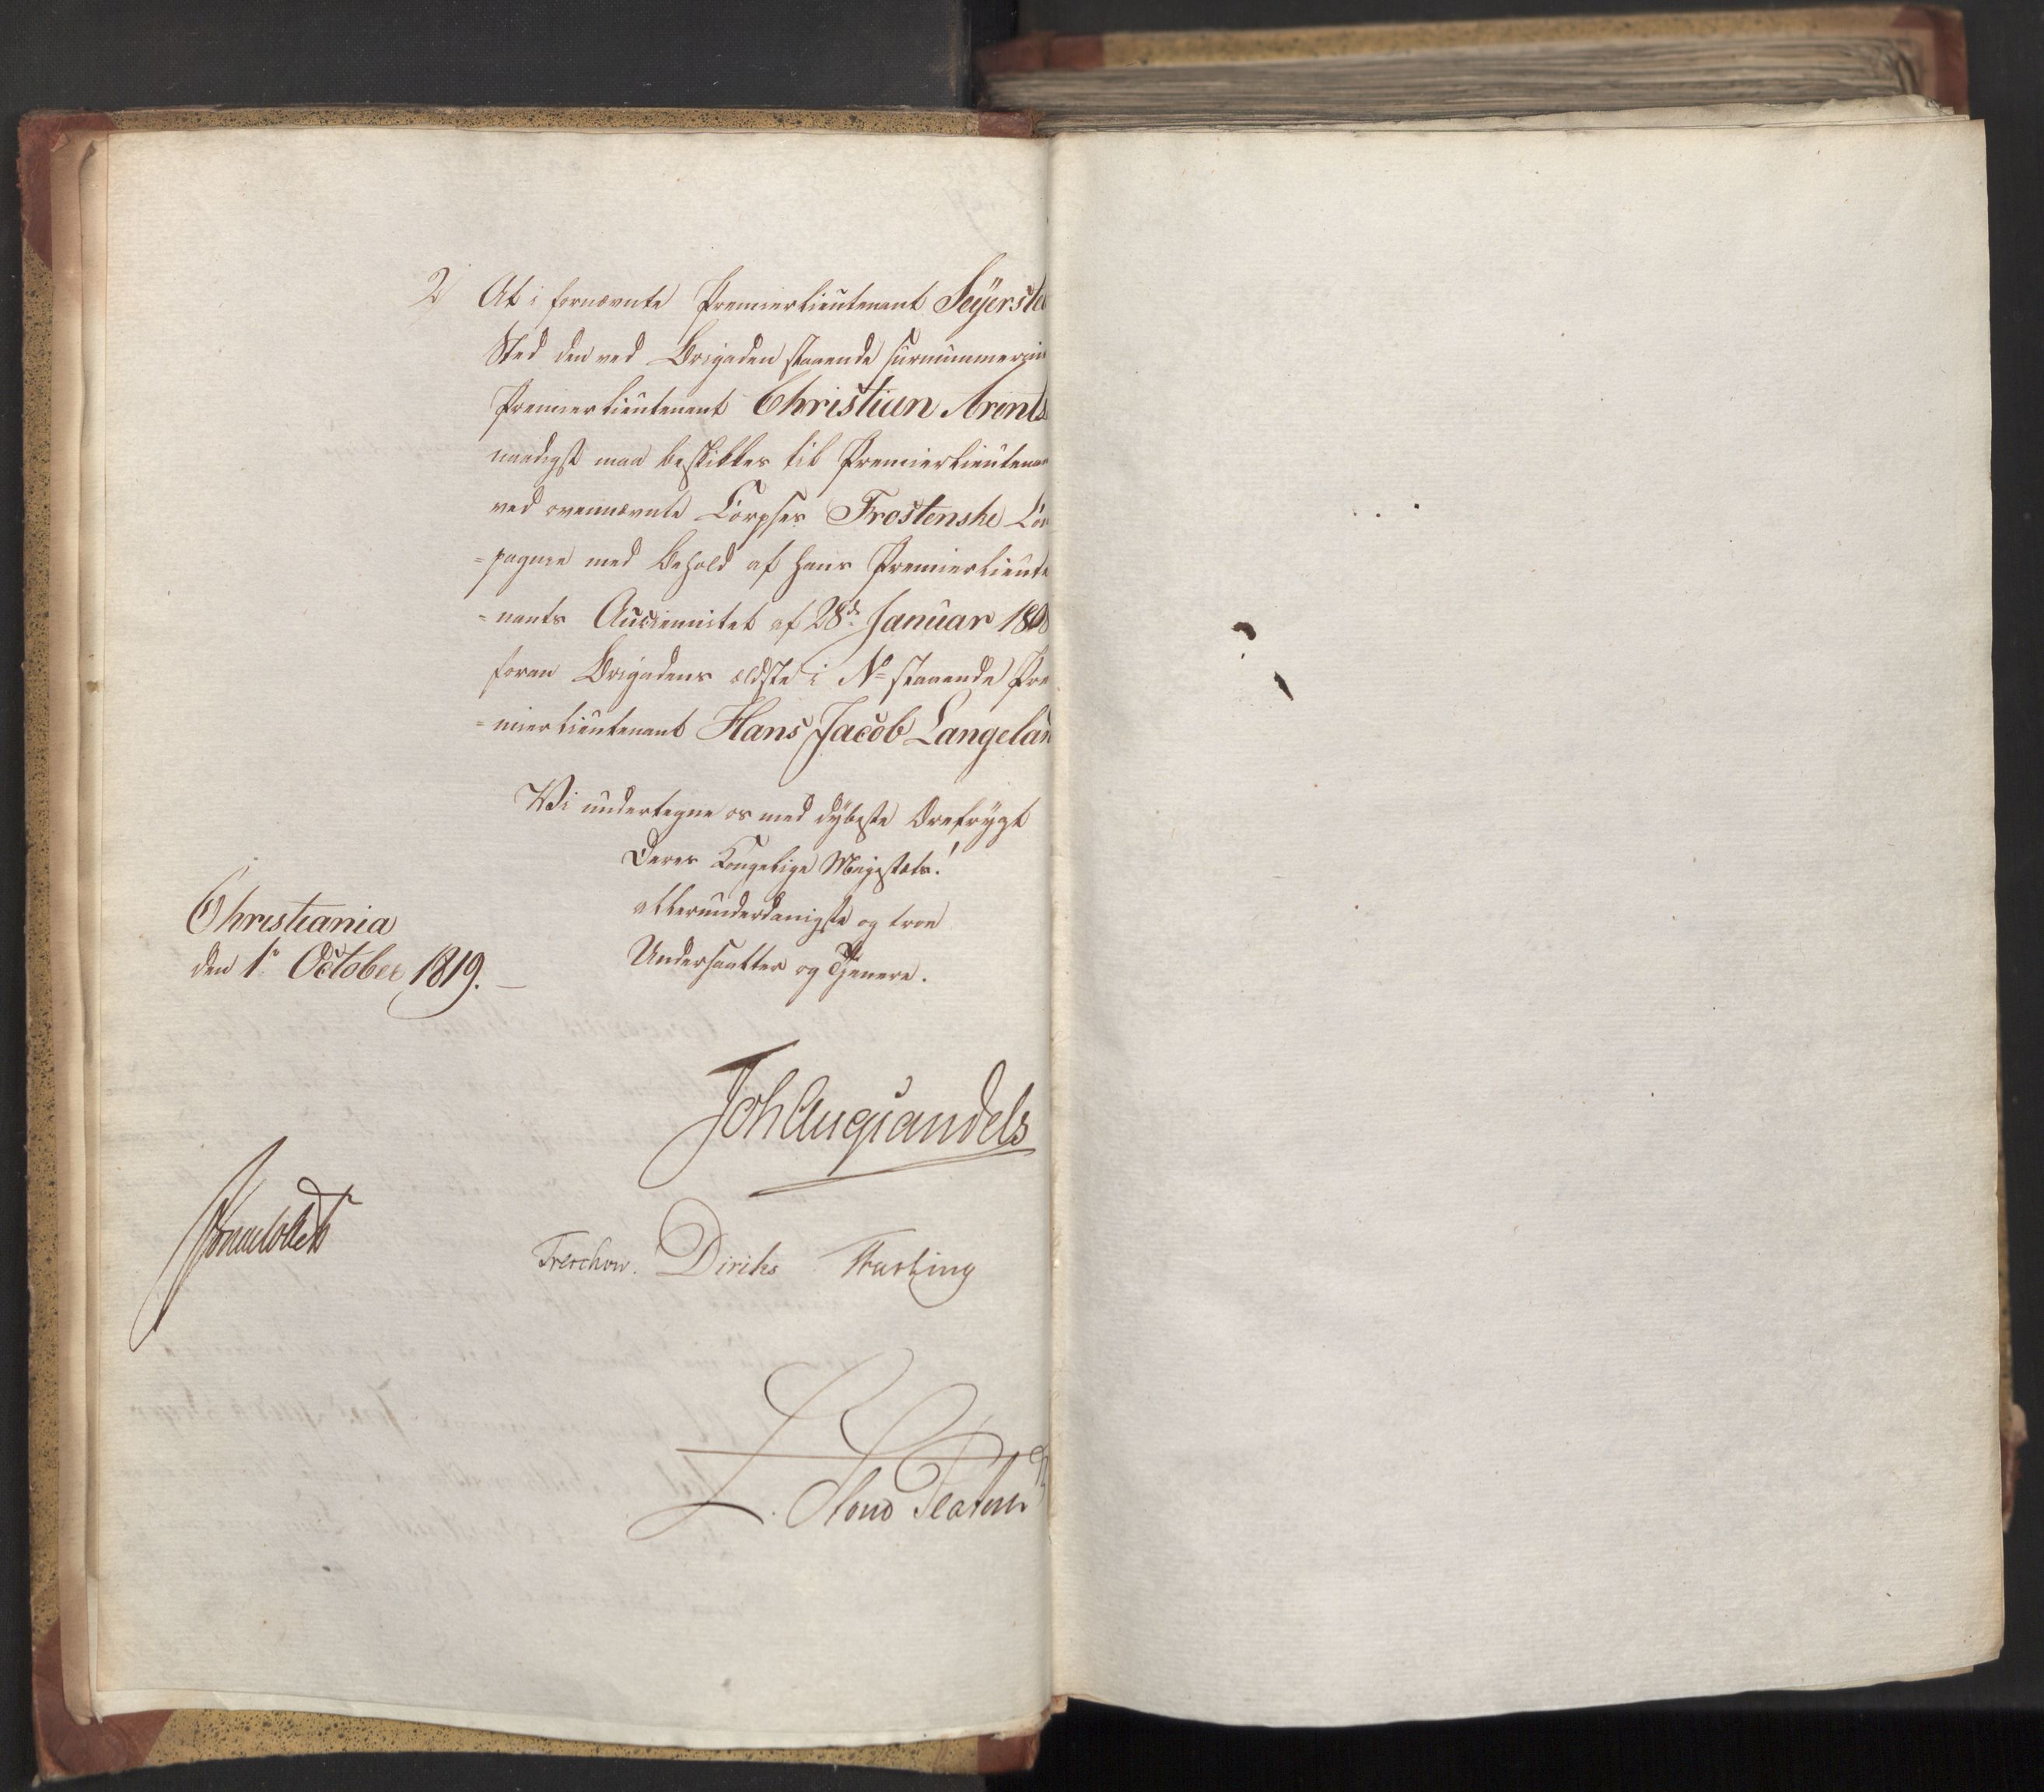 2 At i fornævnte Premierlieutenant Seÿerste
Sted den ved Brigaden staaende surnummerair
Premierlieutenant Christian Arents
naadigst maa beskikkes til Premierlieutenan
ved ovennævnte Corpses Frostenske Co
=pagnie med Behold af hans Premierlieute
=nants Anciennitet af 28de Januar 18
foran Brigadens ældste i No staaende Pre
=mierlieutenant Hans Jacob Langelan
Wi undertegne os med dÿbeste Ærefrÿgt
Deres Kongelige Majestæts!
allerunderdanigste og troe
Undersaatter og Tjenere.
Christiania
den 1e October 1819.
Joh Aug Sandels
Treschow. Diriks Fasting
L. Stoud Platou